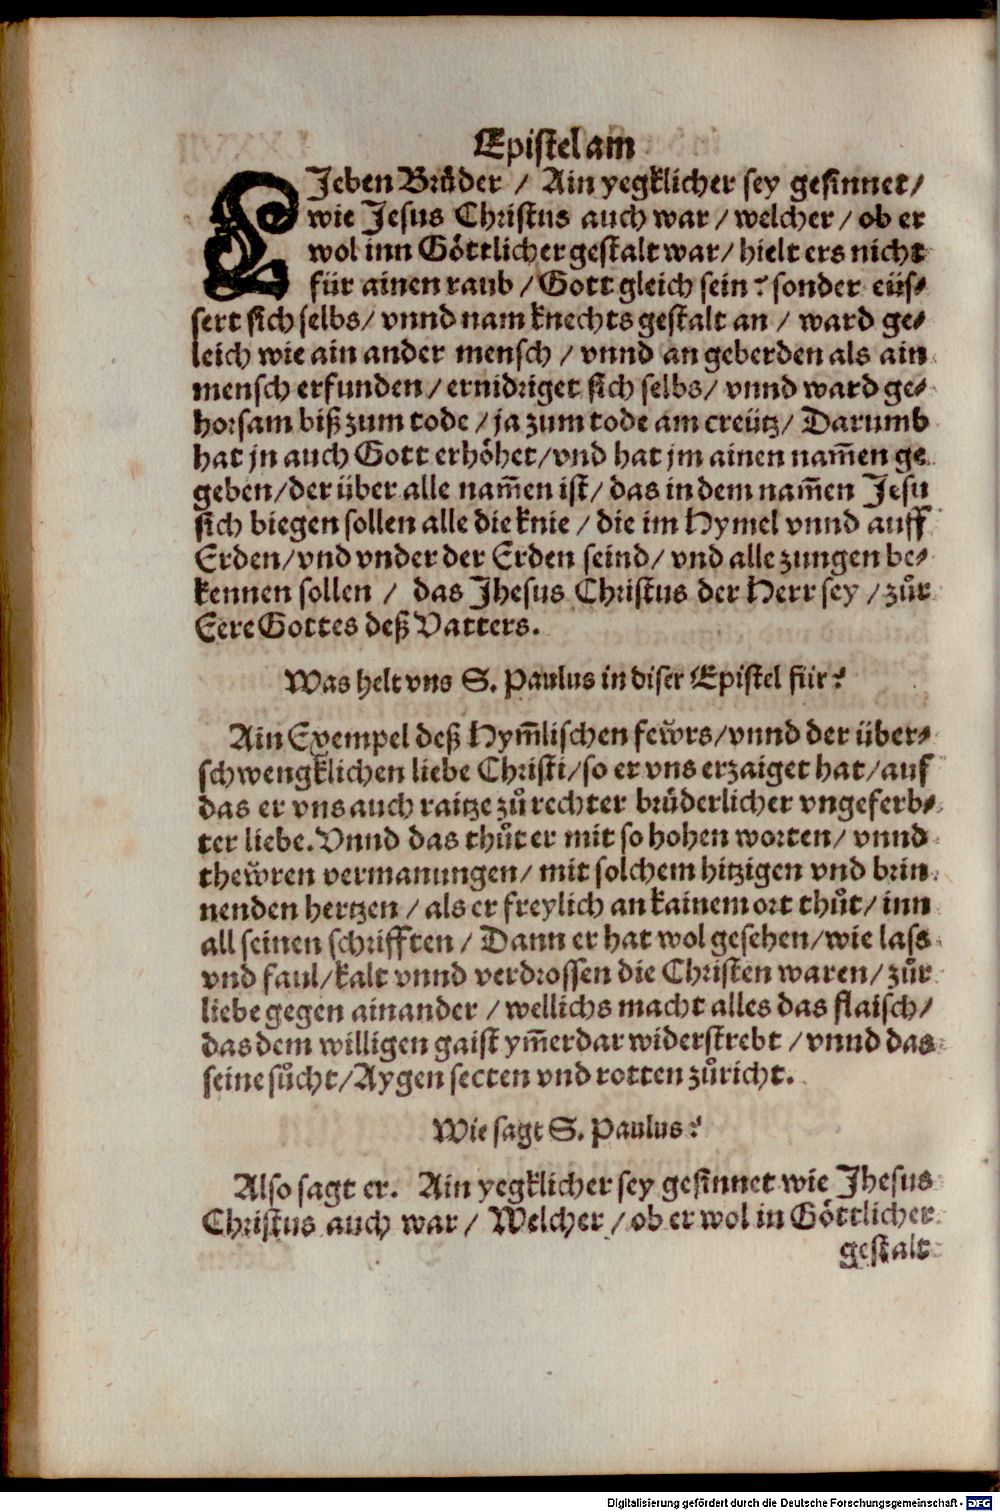 Epistel am
LJeben Brůder / Ain yegklicher sey gesinnet /
wie Jesus Christus auch war / welcher / ob er
wol inn Göttlicher gestalt war / hielt ers nicht
für ainen raub / Gott gleich sein? sonder eüs-
sert sich selbs / vnnd nam knechts gestalt an / ward ge-
leich wie ain ander mensch / vnnd an geberden als ain
mensch erfunden / ernidriget sich selbs / vnnd ward ge-
horsam biß zum tode / ja zum tode am creütz / Darumb
hat jn auch Gott erhöhet / vnd hat jm ainen nam̃en ge
geben / der über alle nam̃en ist / das in dem nam̃en Jesu
sich biegen sollen alle die knie / die im Hymel vnnd auff
Erden / vnd vnder der Erden seind / vnd alle zungen be-
kennen sollen / das Jhesus Christus der Herr sey / zůr
Eere Gottes deß Vatters.
Was helt vns S. Paulus in diser Epistel für?
Ain Exempel deß Hym̃lischen fewrs / vnnd der über-
schwengklichen liebe Christi / so er vns erzaiget hat / auf
das er vns auch raitze zů rechter brůderlicher vngeferb-
ter liebe. Vnnd das thůt er mit so hohen worten / vnnd
thewren vermanungen / mit solchem hitzigen vnd brin
nenden hertzen / als er freylich an kainem ort thůt / inn
all seinen schrifften / Dann er hat wol gesehen / wie lass
vnd faul / kalt vnnd verdrossen die Christen waren / zůr
liebe gegen ainander / wellichs macht alles das flaisch /
das dem willigen gaist ym̃erdar widerstrebt / vnnd das
seine sůcht / Aygen secten vnd rotten zůricht.
Wie sagt S. Paulus?
Also sagt er. Ain yegklicher sey gesinnet wie Jhesus
Christus auch war / Welcher / ob er wol in Göttlicher
gestalt
Digitalisierung gefördert durch die Deutsche Forschungsgemeinschaft - DFG